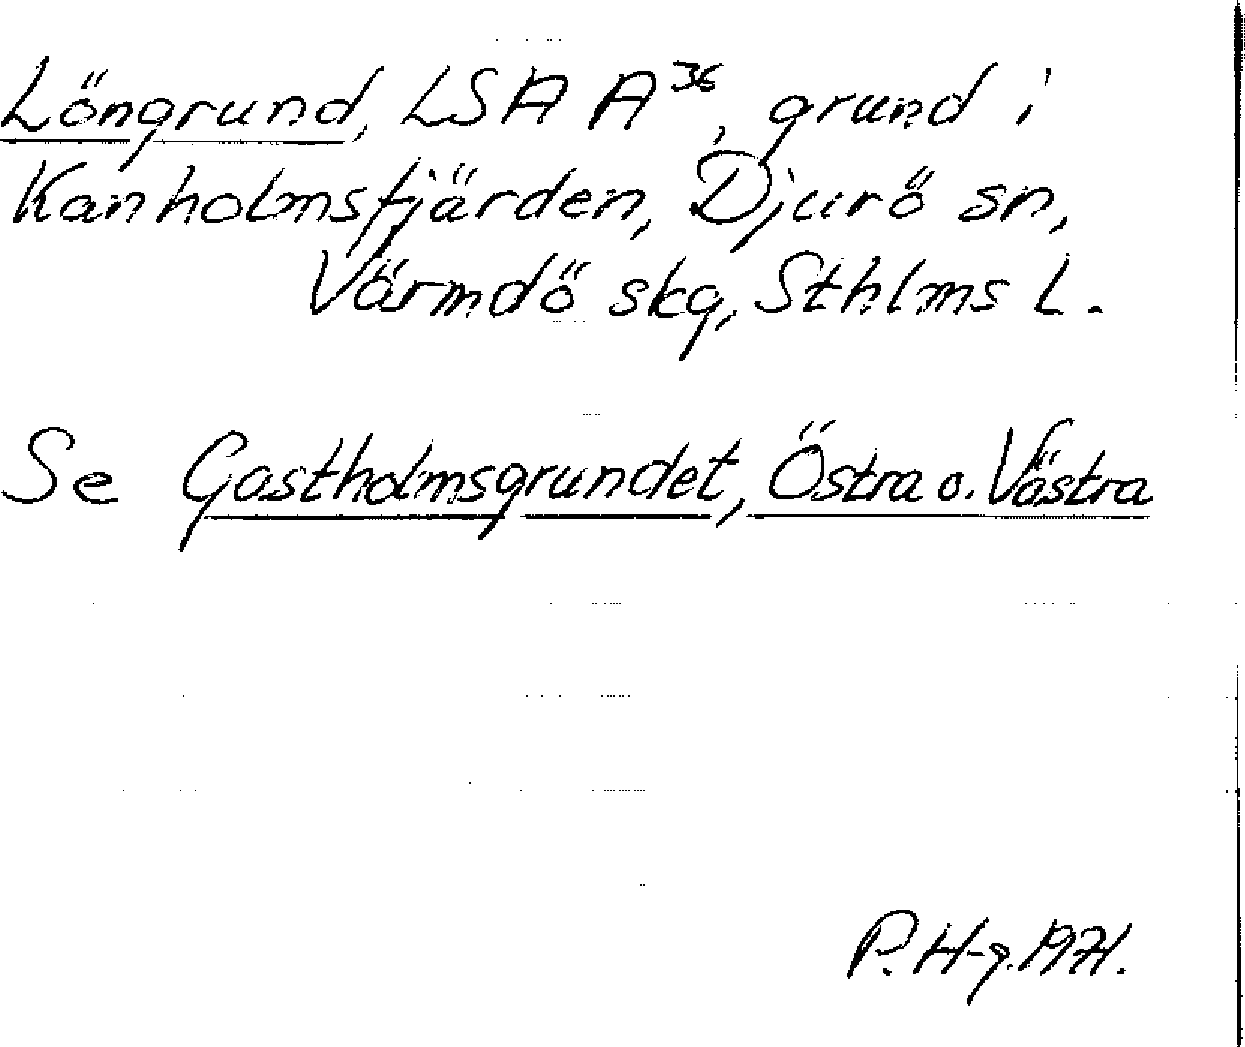 Löngrund, LSA A³⁶, grund i
Kanholmsfjärden, Djurö sn,
Värmdö skg, Sthlms l.
Se Gastholmsgrundet, Östra o. Västra
P. H-g. 1971.